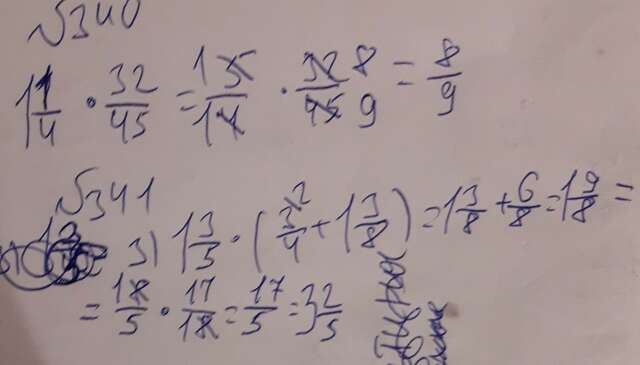 №340
1 1/4 · 32/45 = 5/4 · 32/45 8/9 = 8/9
№341
3) 1 3/5 · (3/4 + 1 3/8) = 1 3/8 + 6/8 = 1 9/8 =
= 18/5 · 17/18 = 17/5 = 3 2/5